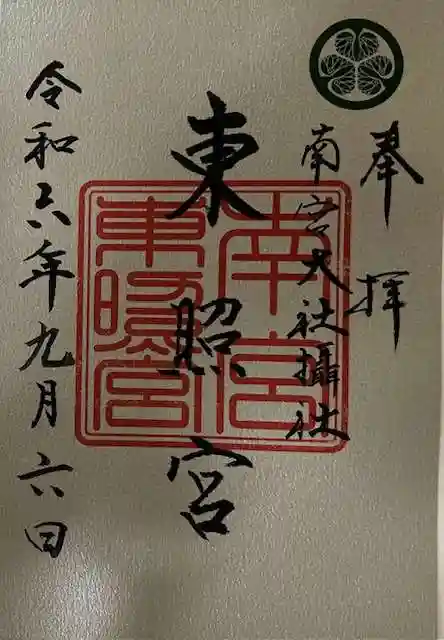 奉拝
南宮大社攝社
東照宮
令和六年九月六日
南宮
東照宮